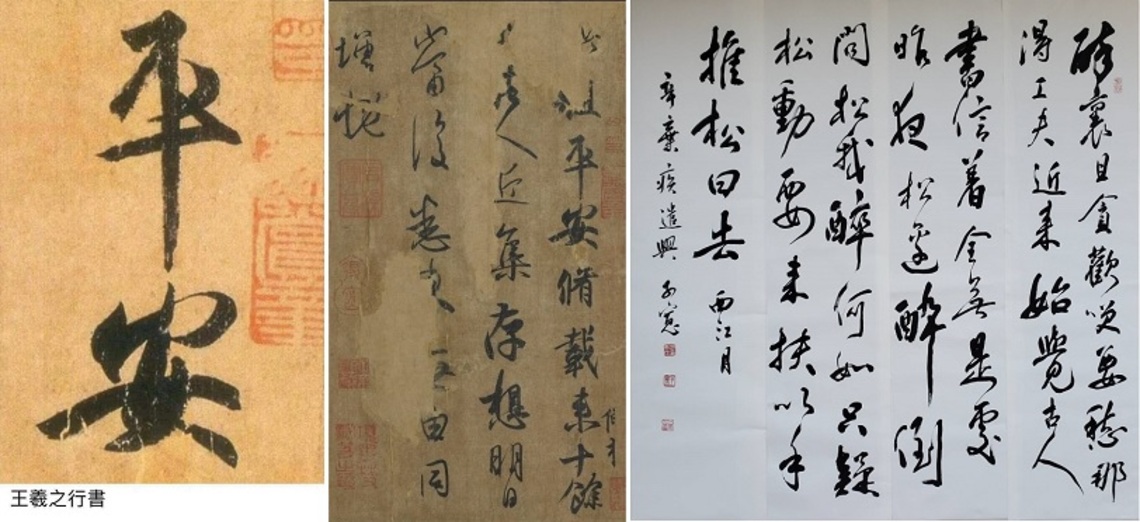 平安
王羲之行書
此粗平安脩載來十餘
日諸人近集存想明日
當復悉來無由同
增慨
醉裏且貪歡笑要愁那
得工夫近來始覺古人
書信着全無是處
昨夜松邊醉倒
問松我醉何如只疑
松動要來扶以手
推松曰去 西江月
辛棄疾遣興